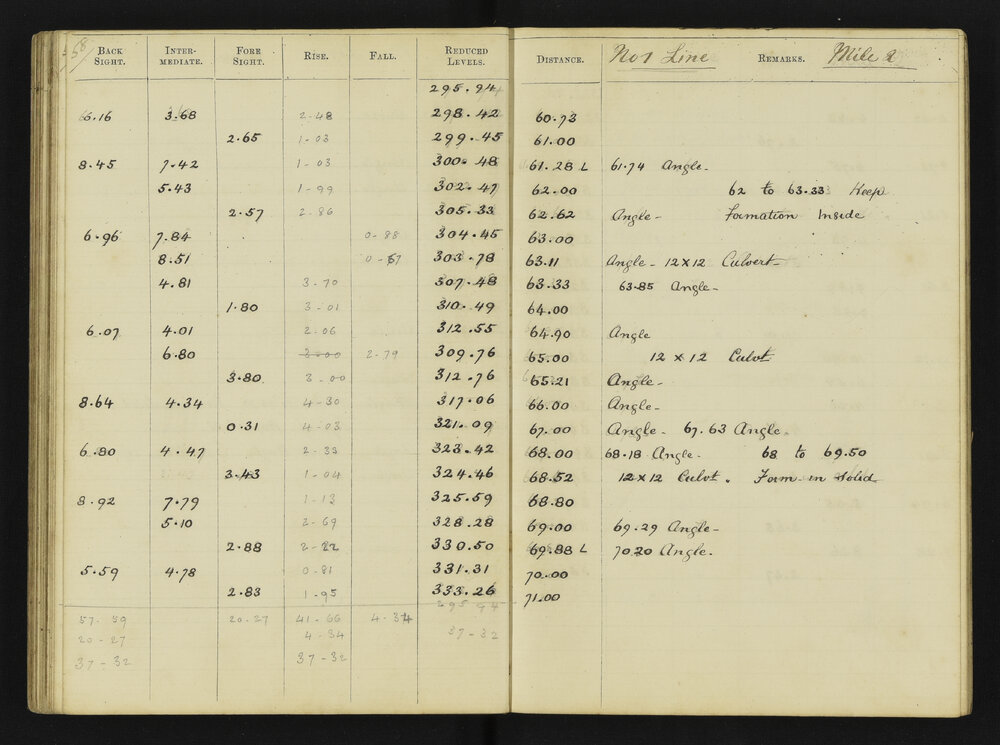 58
BACK SIGHT. INTER-MEDIATE. FORE SIGHT. RISE. FALL. REDUCED LEVELS. DISTANCE. No 1 Line REMARKS. Mile 2
295.94
6.16 3.68 2-48 298.42 60.73
2.65 1-03 299.45 61.00
8.45 7.42 1-03 300.48 61.28 L 61.74 Angle-
5.43 1-99 302.47 62.00 62 to 63.33 Keep
2.57 2-86 305.33 62.62 Angle- Formation Inside
6.96 7.84 0-88 304.45 63.00
8.51 0-67 303.78 63.11 Angle- 12x12 Culvert-
4.81 3-70 307.48 63.33 63.85 Angle-
1.80 3-01 310.49 64.00
6.07 4.01 2-06 312.55 64.90 Angle
6.80 2-79 309.76 65.00 12 x 12 Culvt
3.80 3-00 312.76 65.21 Angle-
8.64 4.34 4-30 317.06 66.00 Angle-
0.31 4-03 321.09 67.00 Angle- 67.63 Angle.
6.80 4.47 2-33 323.42 68.00 68.18 Angle- 68 to 69.50
3.43 1-04 324.46 68.52 12x12 Culvt. Form-in solid
8.92 7.79 1-13 325.59 68.80
5.10 2-69 328.28 69.00 69.29 Angle-
2.88 2-22 330.50 69.88 L 70.20 Angle.
5.59 4.78 0-81 331.31 70.00
2.83 1.95 333.26 71.00
295 94
57-59 20-27 41-66 4-34 37-32
20-27 4-34
37-32 37-32